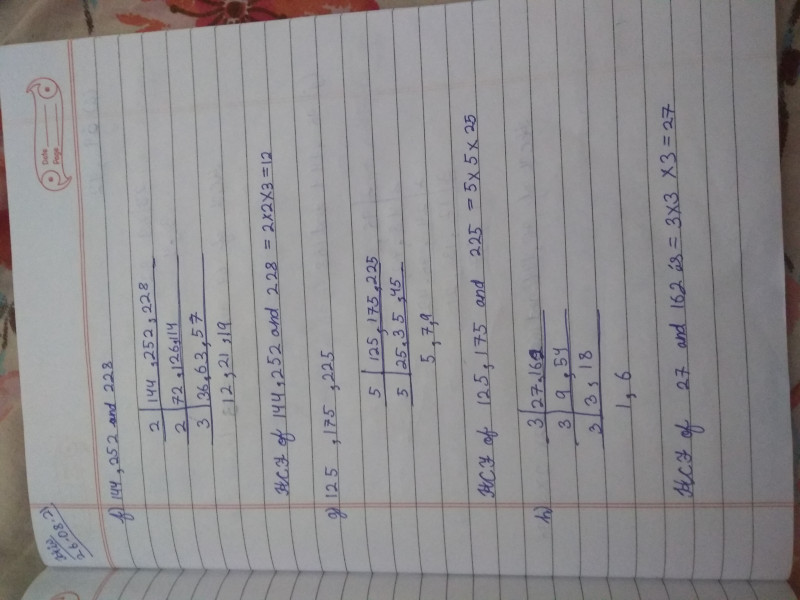 Date
Page
26.08.21
f) 144, 252 and 228
2 | 144, 252, 228
2 | 72, 126, 114
3 | 36, 63, 57
12, 21, 19
H.C.F of 144, 252 and 228 = 2×2×3 = 12
g) 125, 175, 225
5 | 125, 175, 225
5 | 25, 35, 45
5, 7, 9
H.C.F of 125, 175 and 225 = 5×5×25
h)
3 | 27, 162
3 | 9, 54
3 | 3, 18
1, 6
H.C.F of 27 and 162 is = 3×3×3 = 27